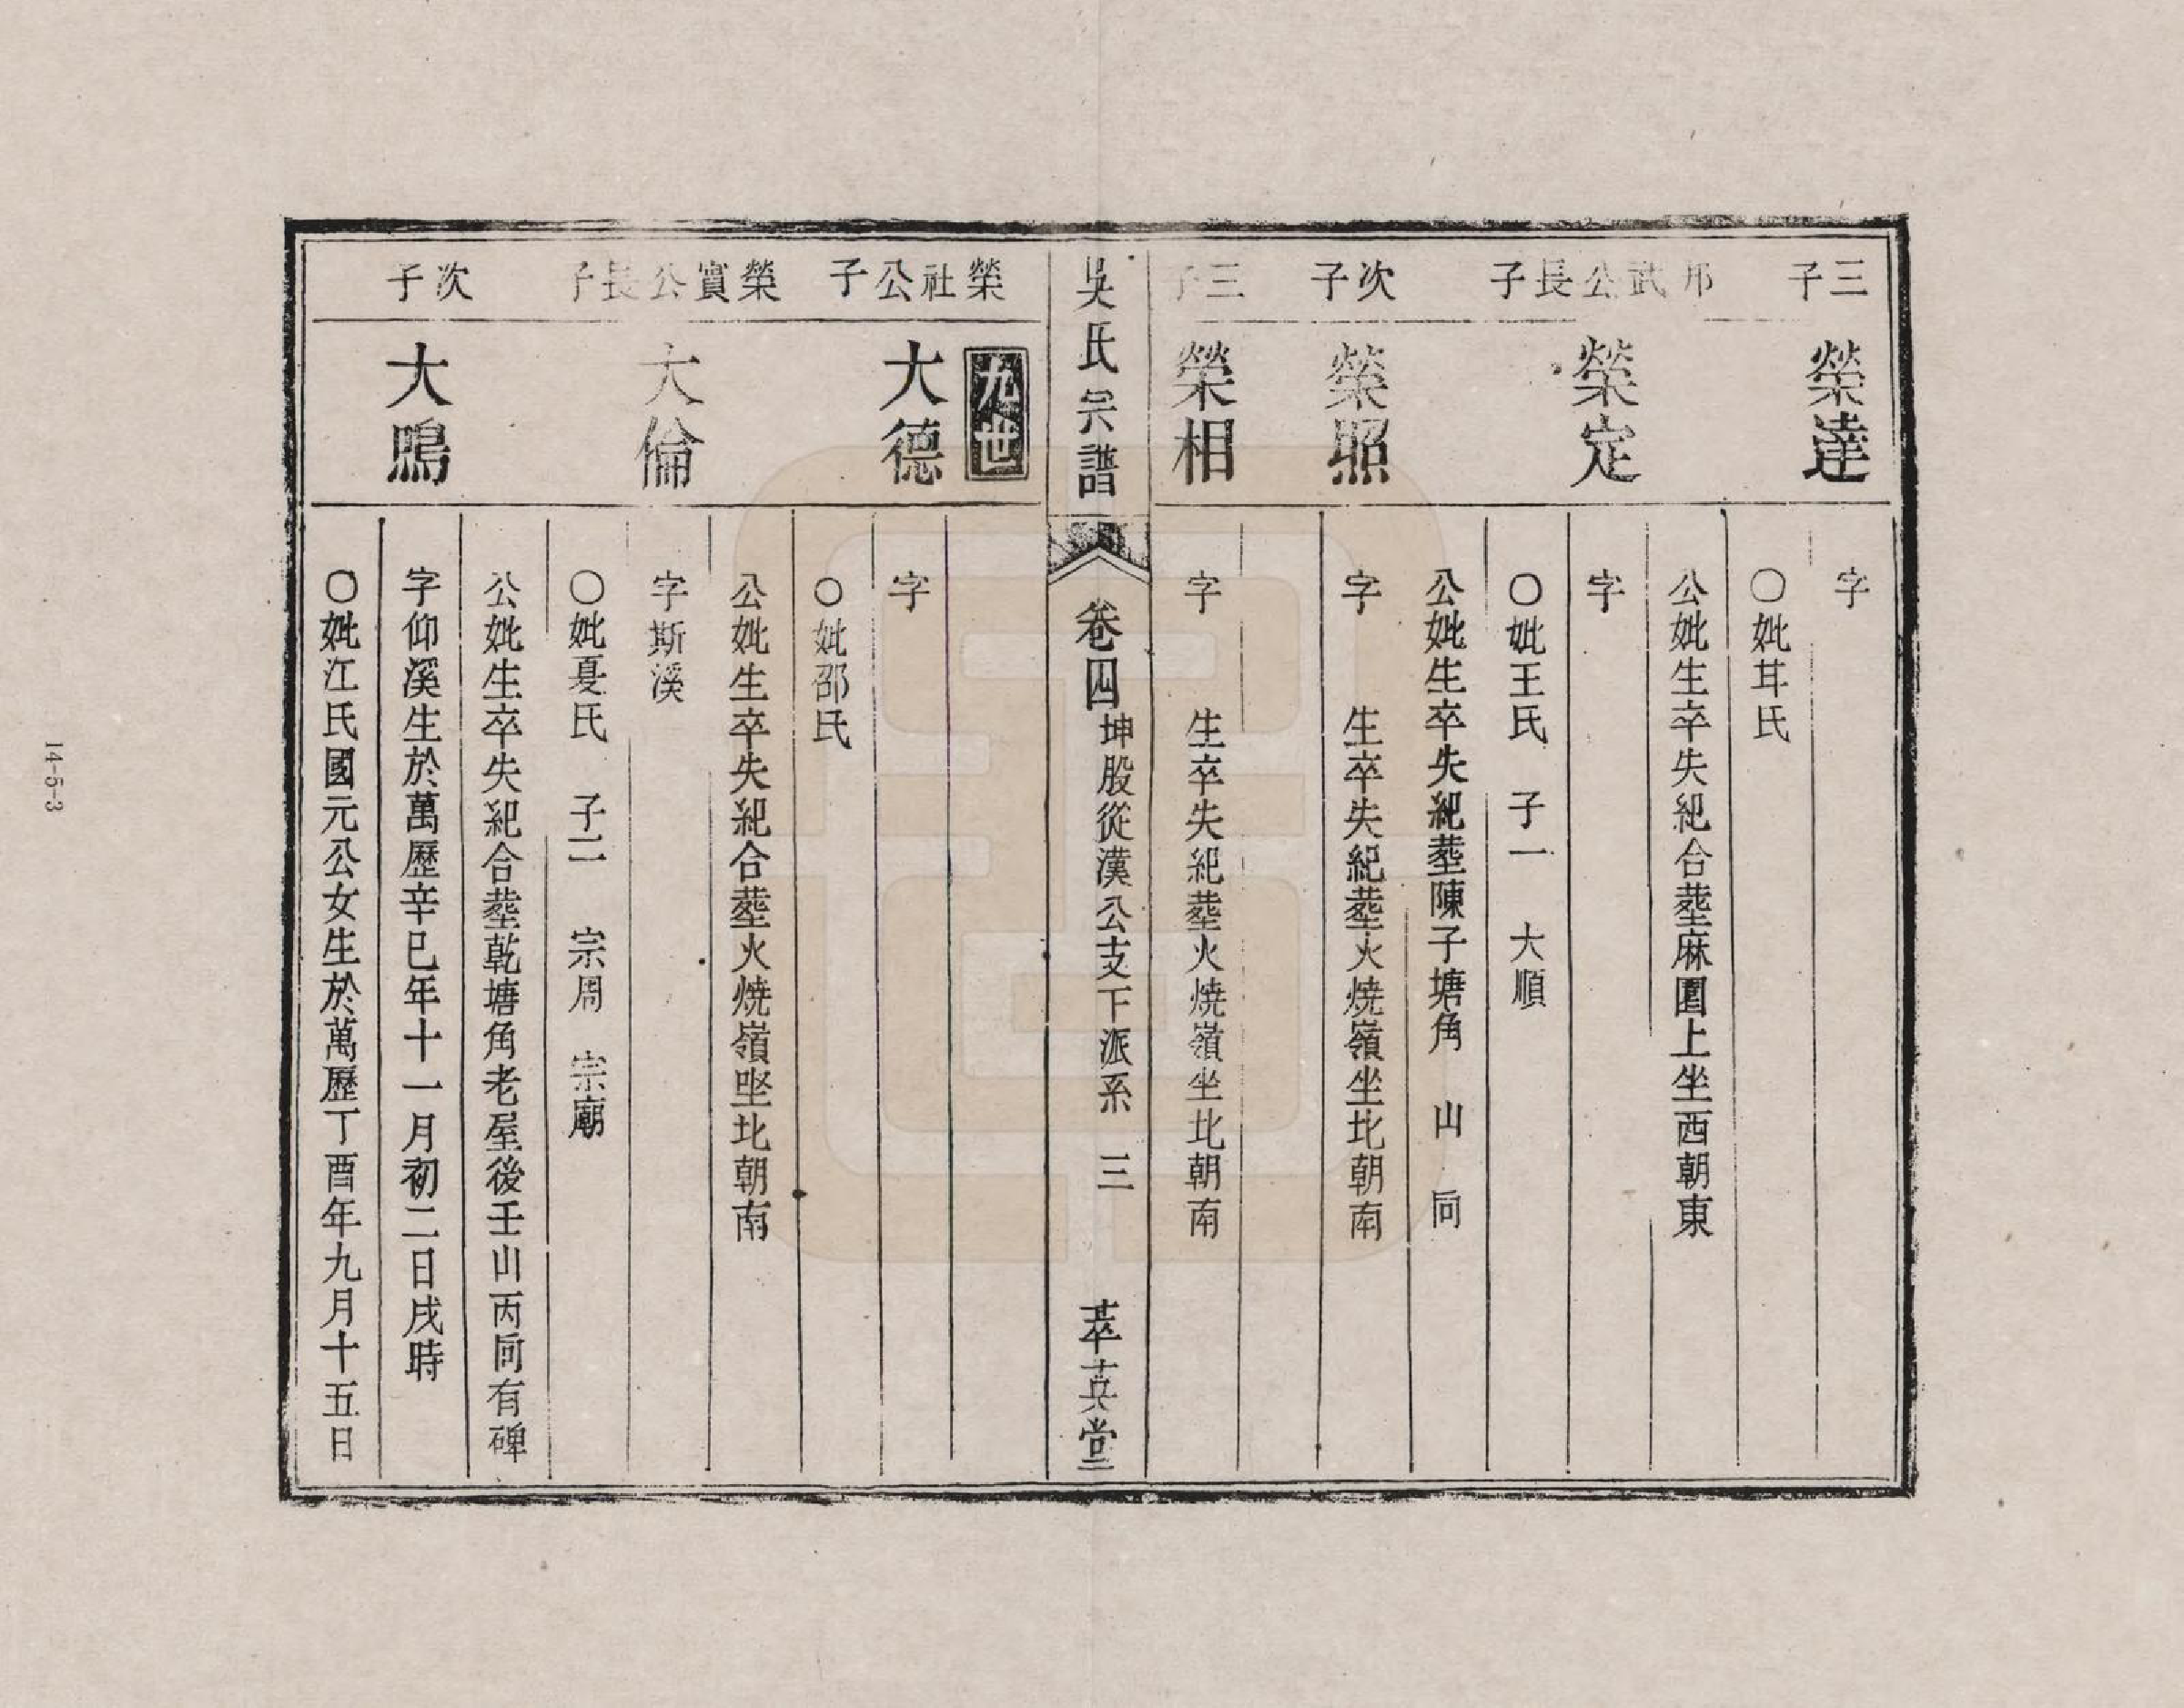 三子
榮達
字
○妣耳氏
公妣生卒失紀合塟麻園上坐西朝東
邦武公長子
榮定
字
○妣王氏　子一　大順
公妣生卒失紀塟陳子塘角　山　向
次子
榮照
字　　生卒失紀塟火燒嶺坐北朝南
三子
榮相
字　　生卒失紀塟火燒嶺坐北朝南
吳氏宗譜
卷四
坤股從漢公支下派系　三
萃英堂
九世
榮社公子
大德
字
○妣邵氏
公妣生卒失紀合塟火燒嶺坐北朝南
榮實公長子
大倫
字斯溪
○妣夏氏　子二　宗周　宗廟
公妣生卒失紀合塟乾塘角老屋後壬山丙向有碑
次子
大鵾
字仰溪生於萬歷辛巳年十一月初二日戌時
○妣江氏國元公女生於萬歷丁酉年九月十五日
14-5-3